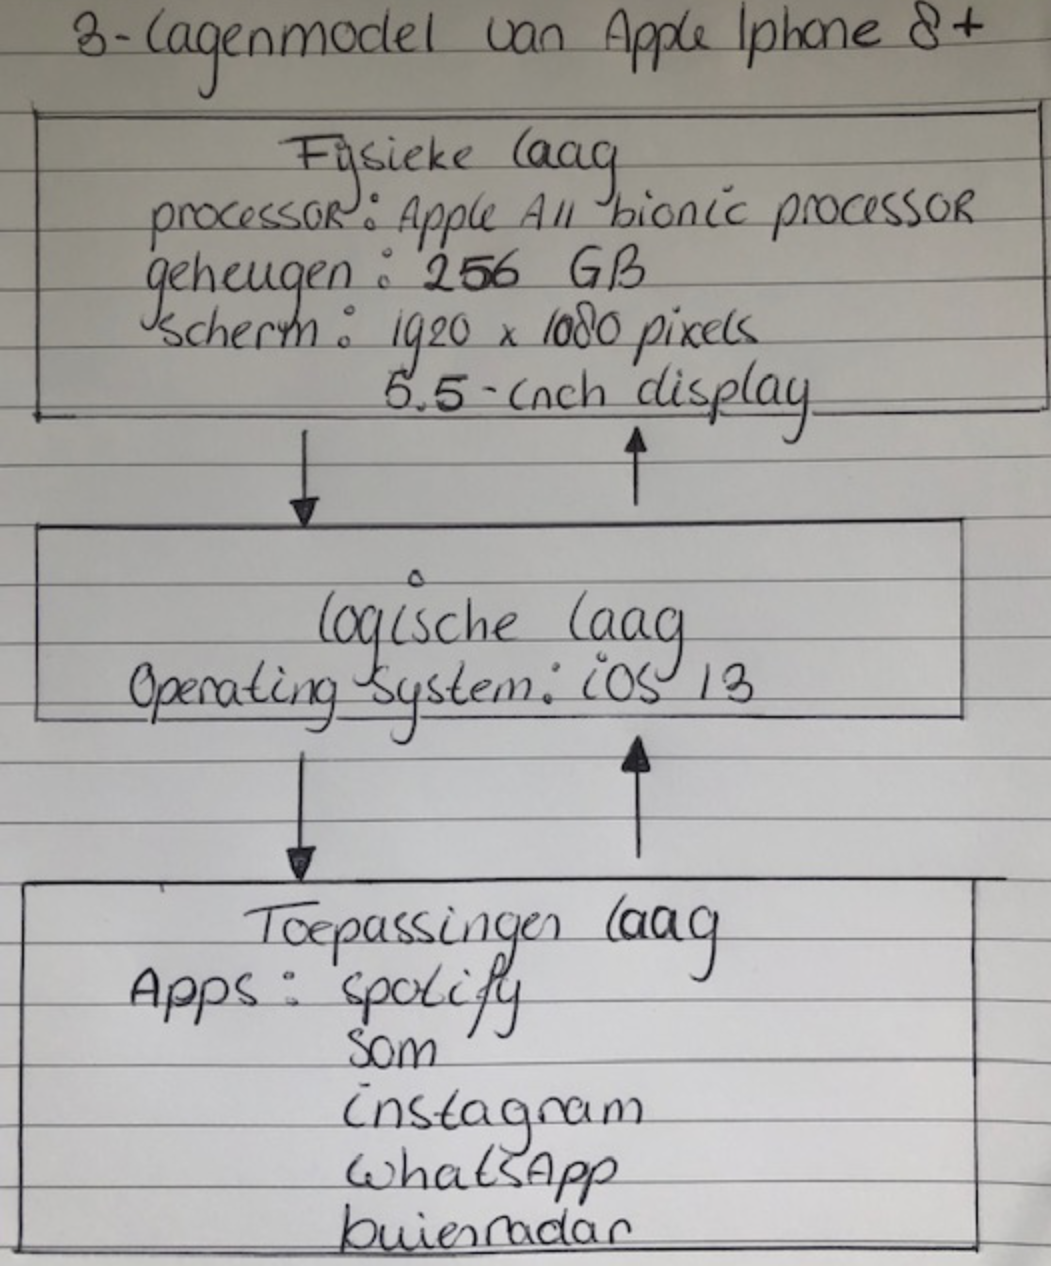 3-lagenmodel van Apple Iphone 8+
Fysieke laag
processor: Apple A11 bionic processor
geheugen: 256 GB
scherm: 1920 x 1080 pixels
5.5-inch display
logische laag
Operating system: iOS 13
Toepassingen laag
Apps: spotify
som
instagram
WhatsApp
buienradar